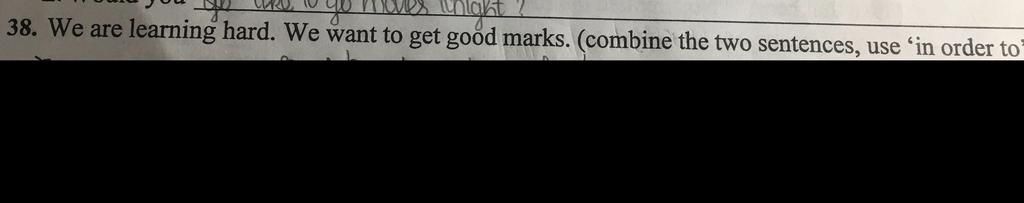 like to go movies tonight ?
38. We are learning hard. We want to get good marks. (combine the two sentences, use ‘in order to’